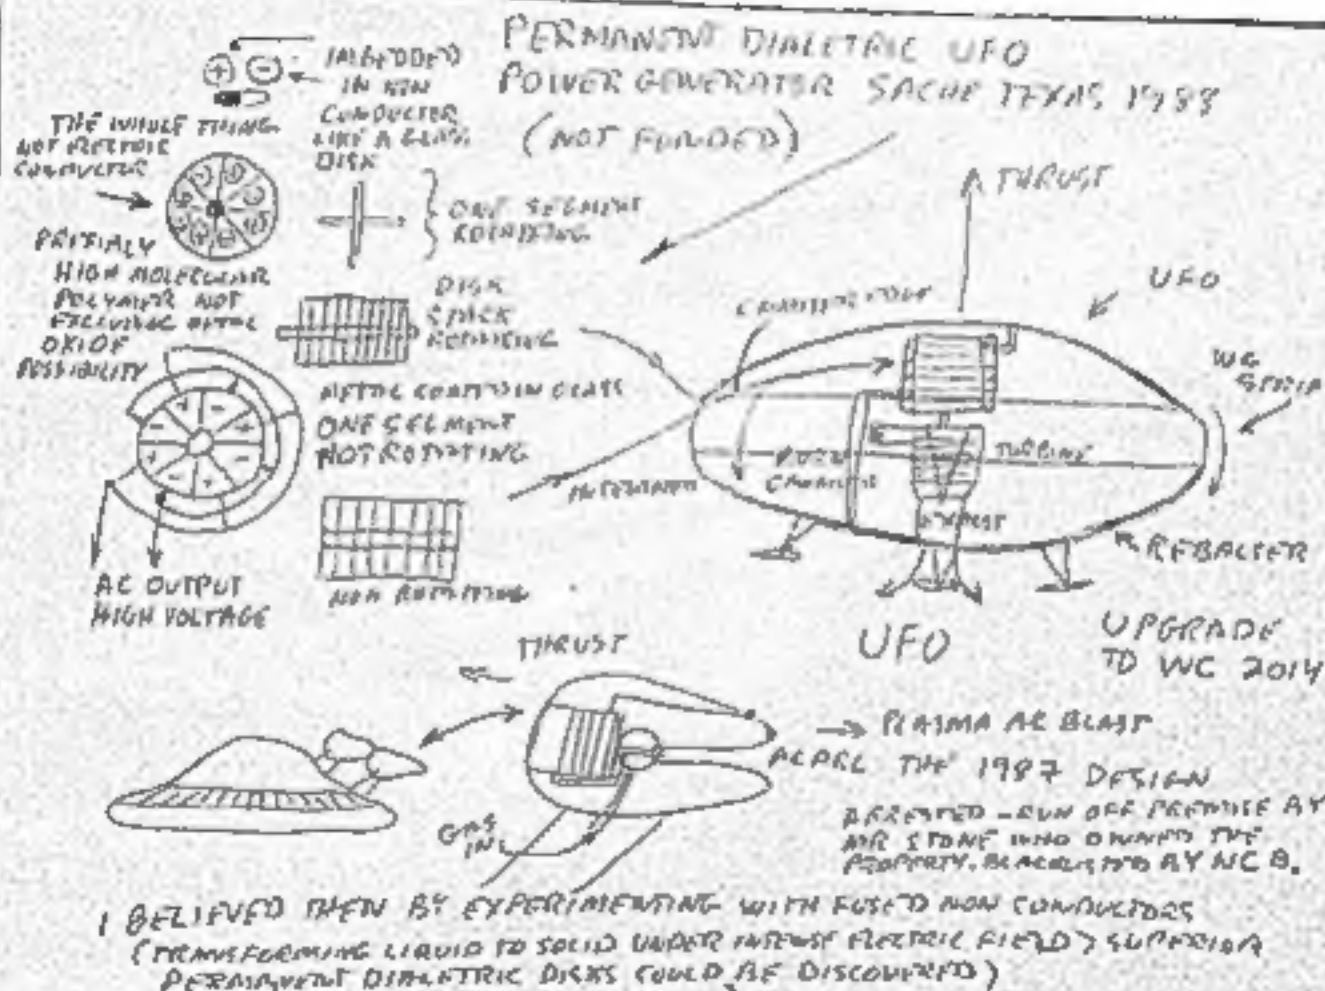 PERMANENT DIALETRIC UFO
POWER GENERATOR SACHE TEXAS 1988
(NOT FUNDED)
IMBEDDED
IN NON
CONDUCTER
LIKE A GLASS
DISK
THE WHOLE THING
NOT ELECTRIC
CONDUCTOR
ONE SEGMENT
ROTATING
PARTIALY
HIGH MOLECULAR
POLYMER NOT
EXCLUDING METAL
OXIDE
POSSIBILITY
DISK
STACK
ROTATING
METAL COATED IN GLASS
ONE SEGMENT
NOT ROTATING
NON ROTATING
AC OUTPUT
HIGH VOLTAGE
THRUST
UFO
WC
STRIP
TURBINE
REBALTER
UFO
UPGRADE
TO WC 2014
THRUST
PLASMA AC BLAST
THE 1987 DESIGN
ARRESTED - RUN OFF PREMISE BY
MR STONE WHO OWNED THE
PROPERTY. BLACKLISTED BY NCB.
GAS
IN
I BELIEVED THEN BY EXPERIMENTING WITH FUSED NON CONDUCTORS
(TRANSFORMING LIQUID TO SOLID UNDER INTENSE ELECTRIC FIELD) SUPERIOR
PERMANENT DIALETRIC DISKS COULD BE DISCOVERED)